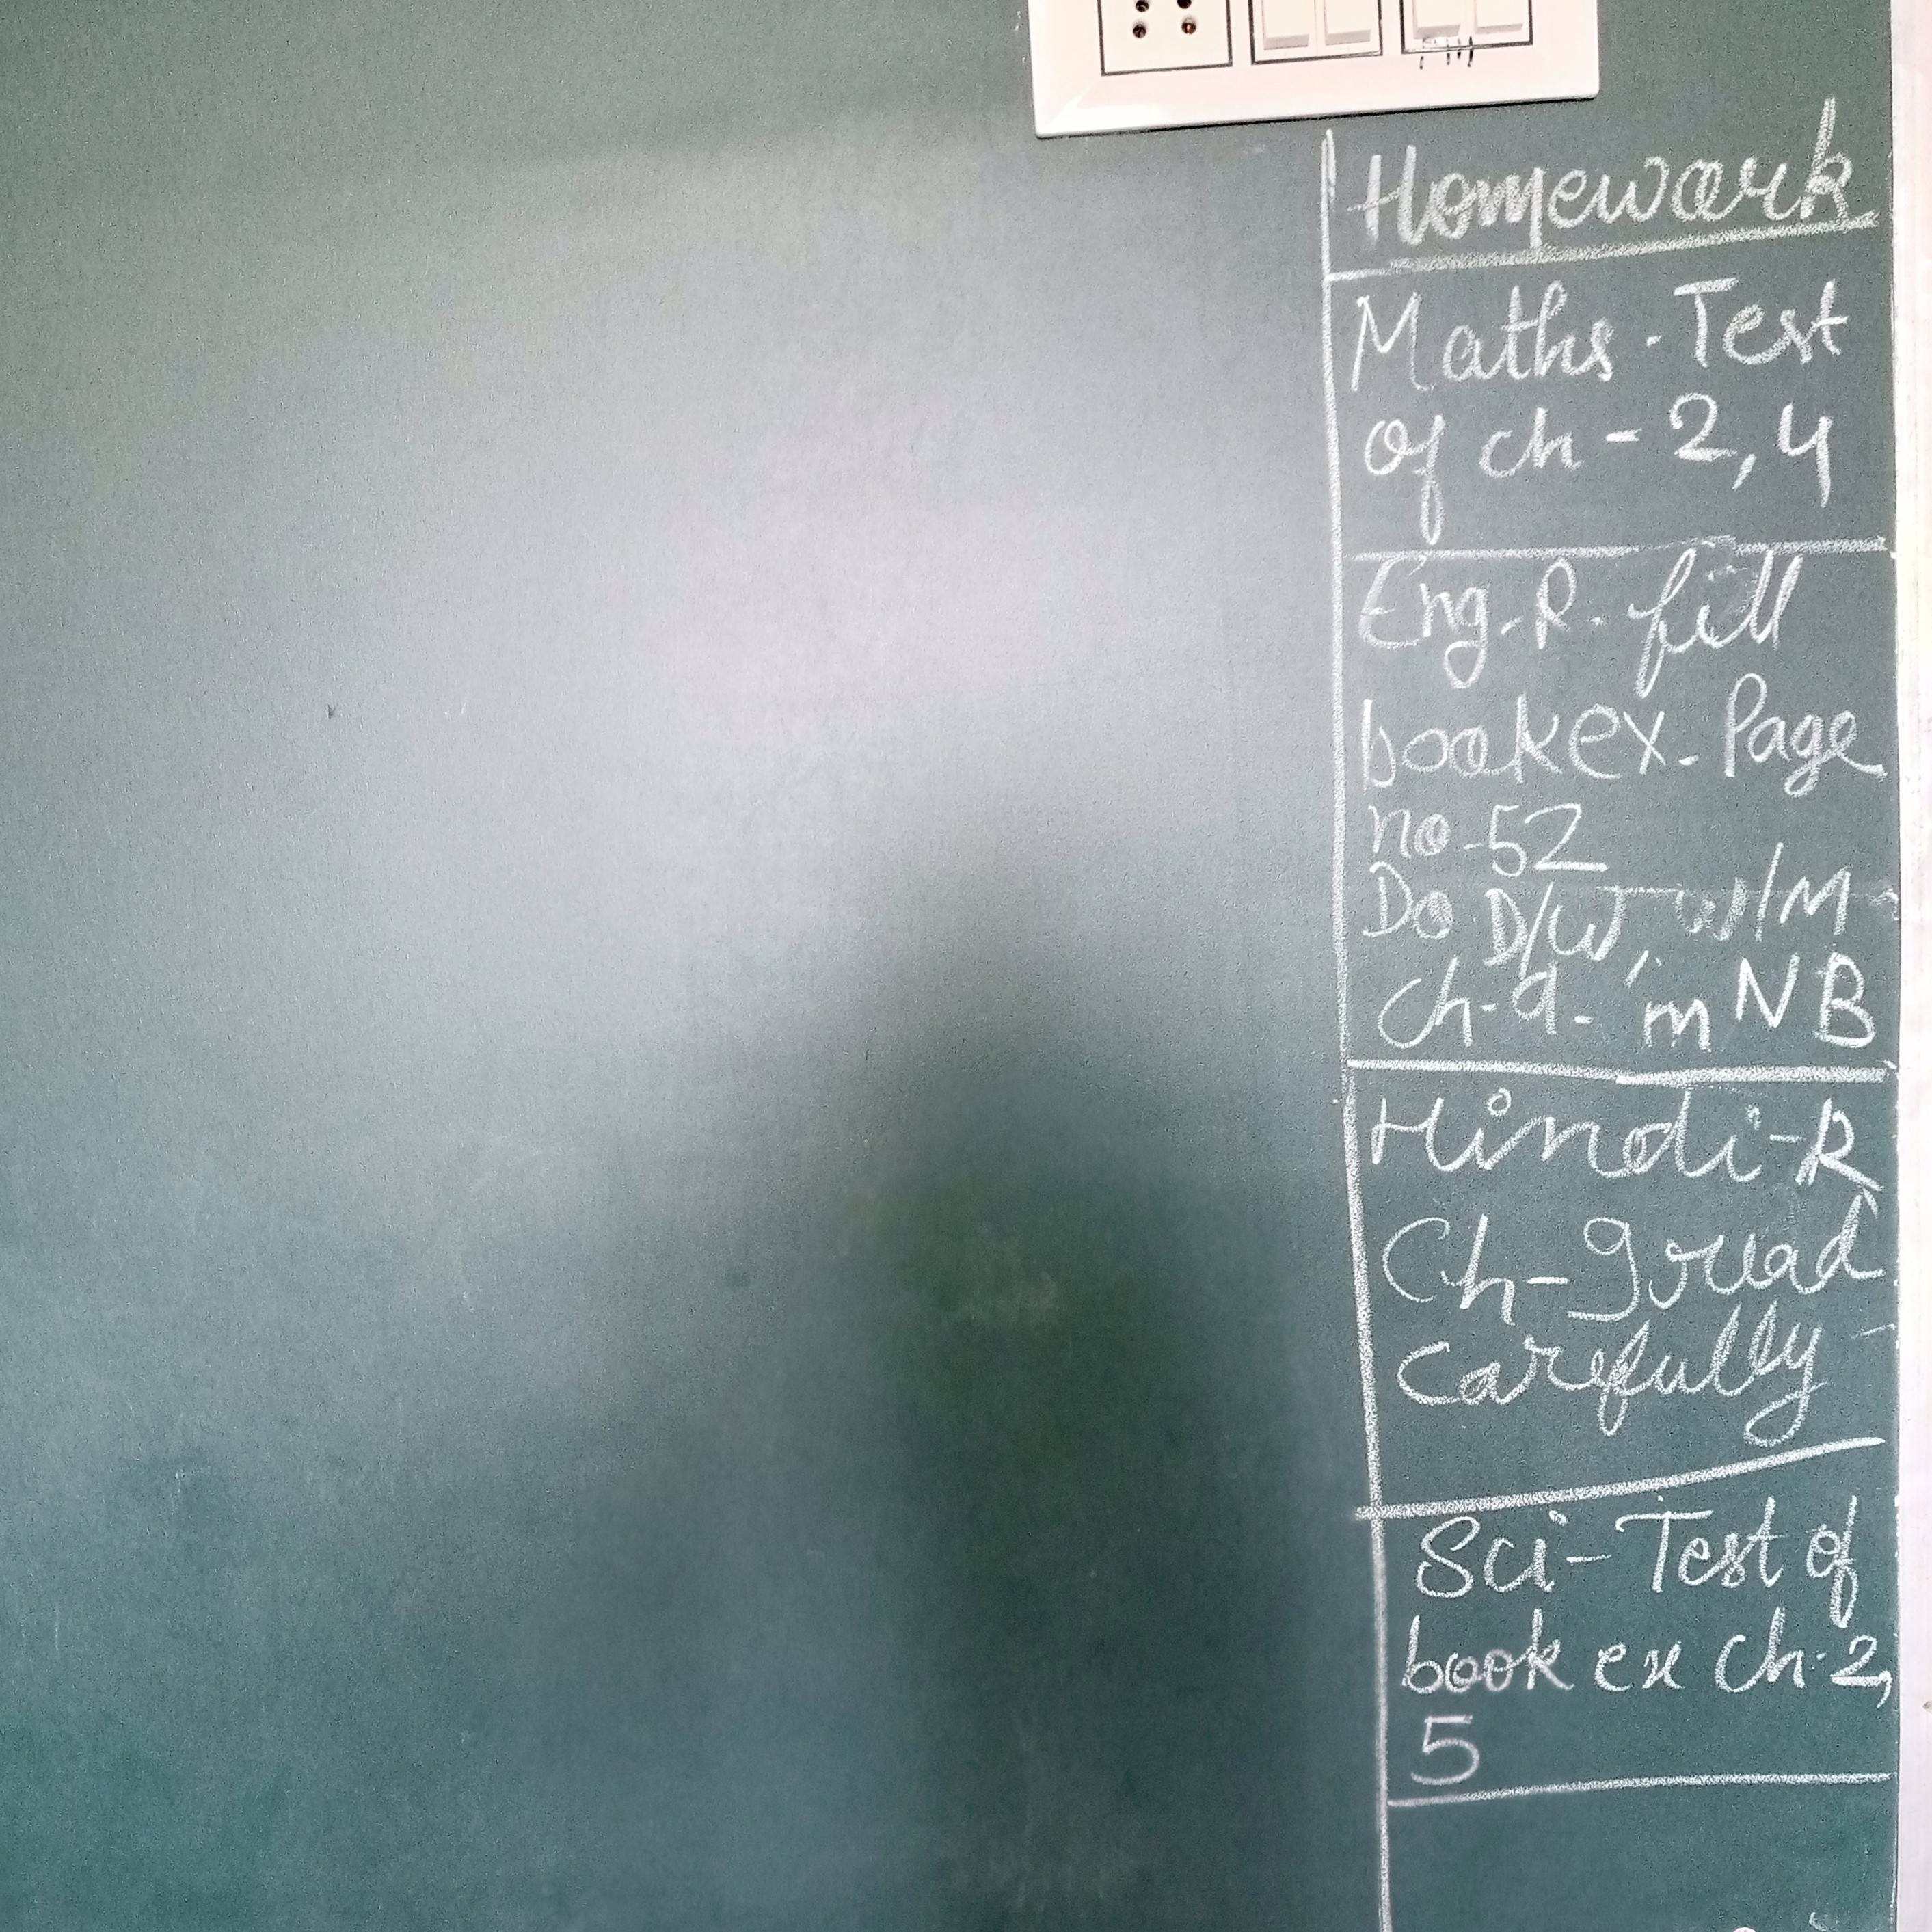 Homework
Maths - Test
of ch - 2, 4
Eng - R - fill
book ex - Page
no - 52
Do D/W, W/M
Ch - 9 - in NB
Hindi - R
Ch - 9 read
carefully
Sci - Test of
book ex Ch - 2,
5